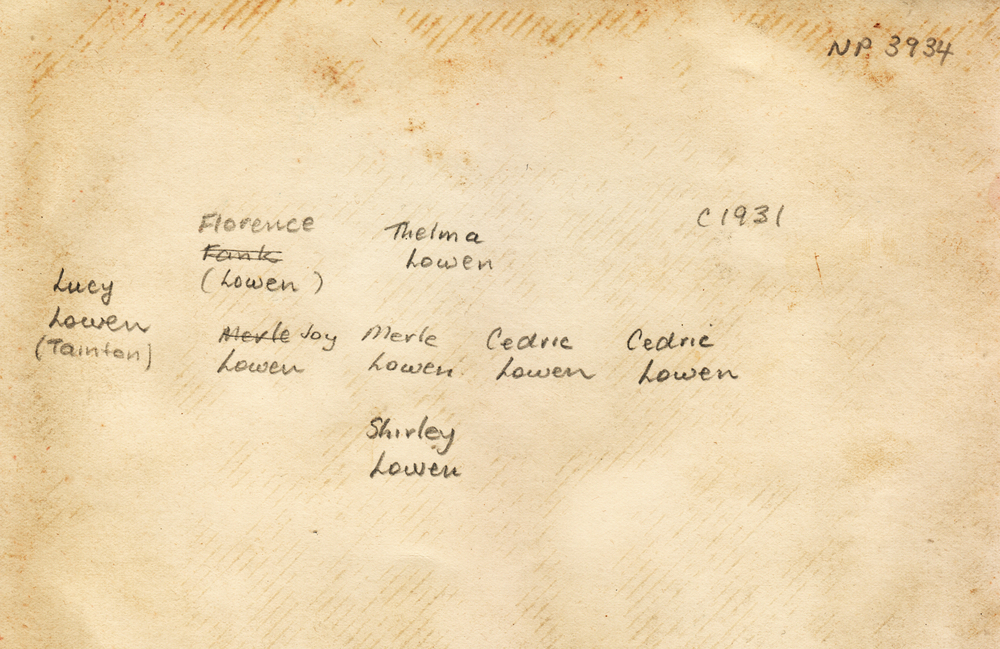 NP 3934
c1931
Florence
Fank
(Lowen)
Thelma
Lowen
Lucy
Lowen
(Tainton)
Merle Joy
Lowen
Merle
Lowen
Cedric
Lowen
Cedric
Lowen
Shirley
Lowen